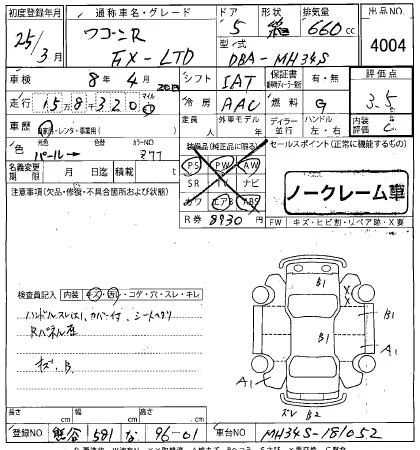 初度登録年月 通称車名・グレード ドア 形状 排気量 出品NO
25/3月 ワゴンR 5 660cc 4004
FX-LTD 型式 DBA-MH34S
車検 8年4月 シフト IAT 保証書 有・無 評価点
走行 158320 マイル 冷房 AAC 燃料 G 3.5
車歴 自家用・レンタ・事業用( ) 定員 人 外車モデル ディーラー 並行 ハンドル 左・右 内装評価 C
色 元色 パール→ 色替 カラーNO Z77 装備品(純正品に限る) セールスポイント(正常に機能するもの)
名義変更期限 月 日迄 積載 t PS PW AW
注意事項(欠品・修復・不具合箇所および状態) SR TV ナビ ノークレーム車
カワ エアB ABS
R券 8930円 FW キズ・ヒビ割・リペア跡・X要
検査員記入 内装 キズ・汚レ・コゲ・穴・スレ・キレ
ハンドルスレ シートヘタリ
Rパネル
キズ、B
B1
X
X
B1
A1
A1
B2
長さ cm 幅 cm 高さ cm
登録NO 熊谷 581 な 96-01 車台NO MH34S-181052